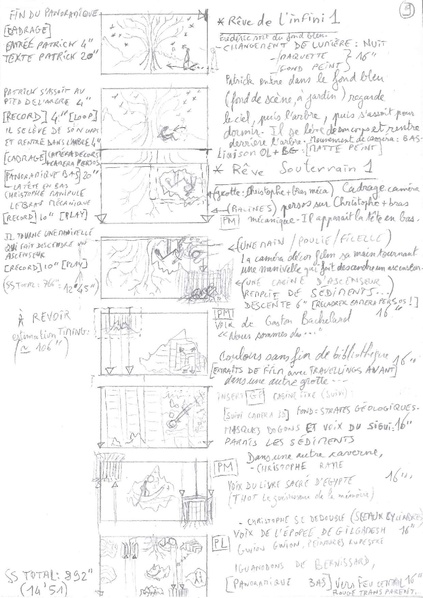 FIN DU PANORAMIQUE
[CADRAGE]
ENTRÉE PATRICK 4"
TEXTE PATRICK 20"
PATRICK S'ASSOIT AU
PIED DE L'ARBRE 4"
[RECORD] 4" [LOOP]
IL SE LÈVE DE SON
ET RENTRE DANS L'ARBRE 4"
[CADRAGE]
[PANORAMIQUE BAS] 20"
LA TÊTE EN BAS
CHRISTOPHE MANIPULE
LE BRAS MÉCANIQUE
[RECORD] 10" [PLAY]
IL TOURNE UNE MANIVELLE
QUI FAIT DESCENDRE UN
ASCENSEUR
[RECORD] 10" [PLAY]
(SS TOTAL:
À REVOIR
estimation TIMING:
(≃ 106")
SS TOTAL: 892"
(14'51)
9
* Rêve de l'infini 1
Frédéric sort du fond bleu
- CHANGEMENT DE LUMIÈRE: NUIT
- MAQUETTE 16"
- FOND PEINT
Patrick entre dans le fond bleu
(fond de scène, à jardin) regarde
le ciel, puis l'arbre, puis s'assoit pour
dormir. Il se lève et rentre
derrière l'arbre. Mouvement de caméra: BAS
Liaison OL + BG: [MATTE PEINT]
* Rêve Souterrain 1
(grotte: Christophe + bras méca) Cadrage caméra
(RACINES) perso sur Christophe + bras
PM mécanique - Il apparaît la tête en bas.
(UNE MAIN / POULIE / FICELLE)
La caméra décor filme sa main tournant
une manivelle qui fait descendre un ascenseur
(UNE CABINE D'ASCENSEUR
REMPLIE DE SÉDIMENTS...
DESCENTE 6"
PM 16"
VOIX de Gaston Bachelard
"Nous sommes du..."
Couloirs sans fin de bibliothèque 16"
[EXTRAITS DE FILM avec TRAVELLINGS AVANT]
dans une autre grotte...
INSERT
FOND: STRATES GÉOLOGIQUES.
MASQUES DOGONS ET VOIX DU SIGUI 16"
PARMIS LES SÉDIMENTS
Dans une autre caverne,
PM - CHRISTOPHE RAME
VOIX DU LIVRE SACRÉ D'ÉGYPTE 16"
(THOT le guérisseur de la mémoire)
- CHRISTOPHE SE DÉDOUBLE
VOIX DE L'ÉPOPÉE DE GILGAMESH 16"
PL
IGUANODONS DE BERNISSART,
[PANORAMIQUE BAS] VERS FEU CENTRAL 16"
ROUGE TRANSPARENT.